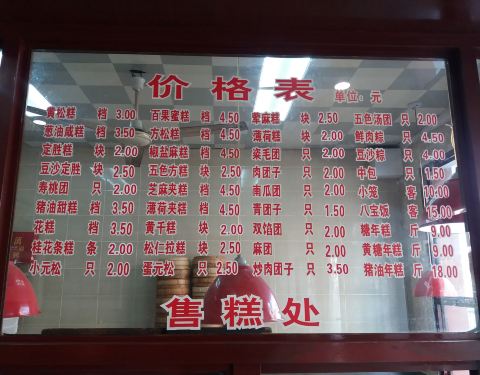 价格表
单位：元
黄松糕 档 3.00 百果蜜糕 档 4.50 荤麻糕 块 2.50 五色汤团 只 2.00
葱油咸糕 档 3.50 方松糕 档 4.50 薄荷糕 块 2.00 鲜肉粽 只 4.50
定胜糕 块 2.00 椒盐麻糕 档 4.50 染毛团 只 2.00 豆沙粽 只 4.00
豆沙定胜 块 2.50 五色方糕 档 4.50 肉团子 只 2.50 中包 只 1.50
寿桃团 只 2.00 芝麻夹糕 档 4.50 南瓜团 只 2.00 小笼 客 10.00
猪油甜糕 档 3.50 薄荷夹糕 档 4.50 青团子 只 1.50 八宝饭 客 15.00
花糕 档 3.50 黄千糕 块 2.00 双馅团 只 2.00 糖年糕 斤 9.00
桂花条糕 条 2.00 松仁拉糕 块 2.50 麻团 只 2.00 黄糖年糕 斤 9.00
小元松 只 2.00 蛋元松 只 2.50 炒肉团子 只 3.50 猪油年糕 斤 18.00
售糕处